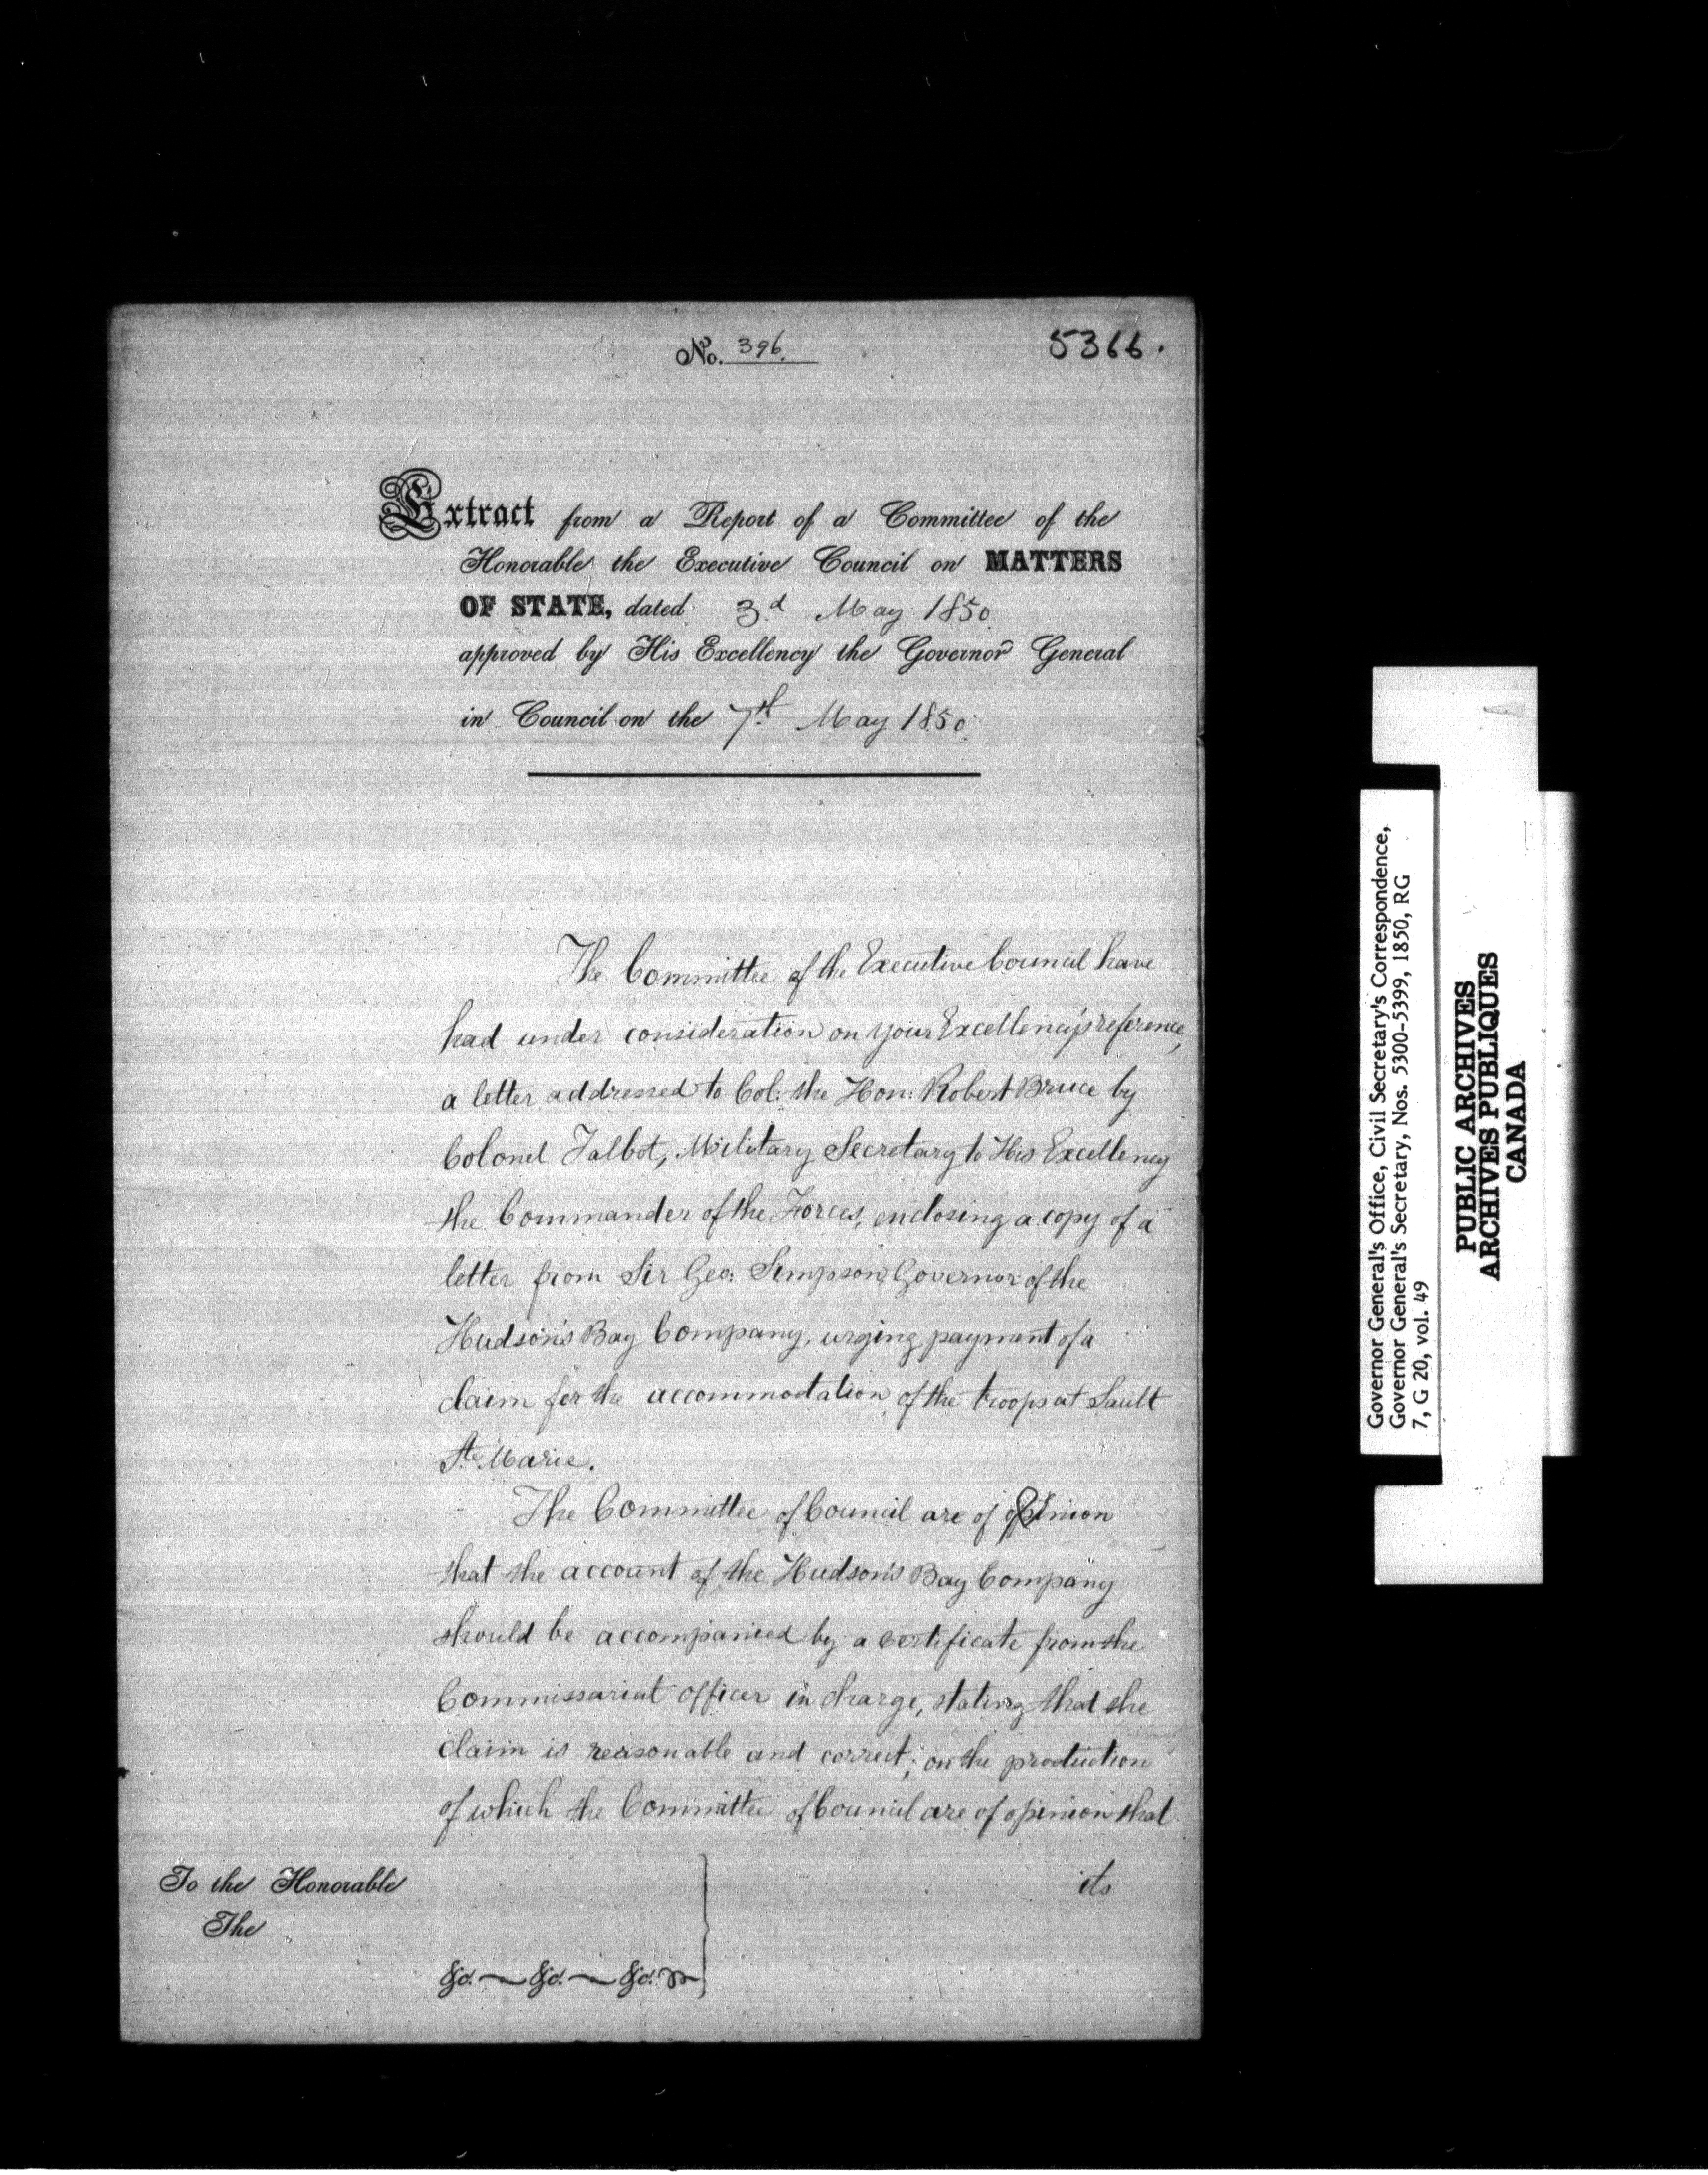 No. 396.
5366.
Extract from a Report of a Committee of the
Honorable the Executive Council on MATTERS
OF STATE, dated 3d May 1850.
approved by His Excellency the Governor General
in Council on the 7th May 1850.
The Committee of the Executive Council have
had under consideration on Your Excellency's reference,
a letter addressed to Col: the Hon: Robert Bruce by
Colonel Talbot, Military Secretary to His Excellency
the Commander of the Forces, enclosing a copy of a
letter from Sir Geo: Simpson, Governor of the
Hudson's Bay Company, urging payment of a
claim for the accommodation of the troops at Sault
Ste. Marie.
The Committee of Council are of opinion
that the account of the Hudson's Bay Company
should be accompanied by a certificate from the
Commissariat officer in charge, stating that the
claim is reasonable and correct; on the production
of which the Committee of Council are of opinion that
its
To the Honorable
The
&c. &c. &c.
Governor General's Office, Civil Secretary's Correspondence,
Governor General's Secretary, Nos. 5300-5399, 1850, RG
7, G 20, vol. 49
PUBLIC ARCHIVES
ARCHIVES PUBLIQUES
CANADA